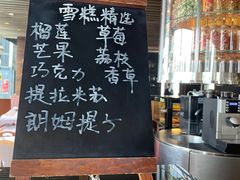 雪糕精选
榴莲 草莓
芒果 荔枝
巧克力 香草
提拉米苏
朗姆提子